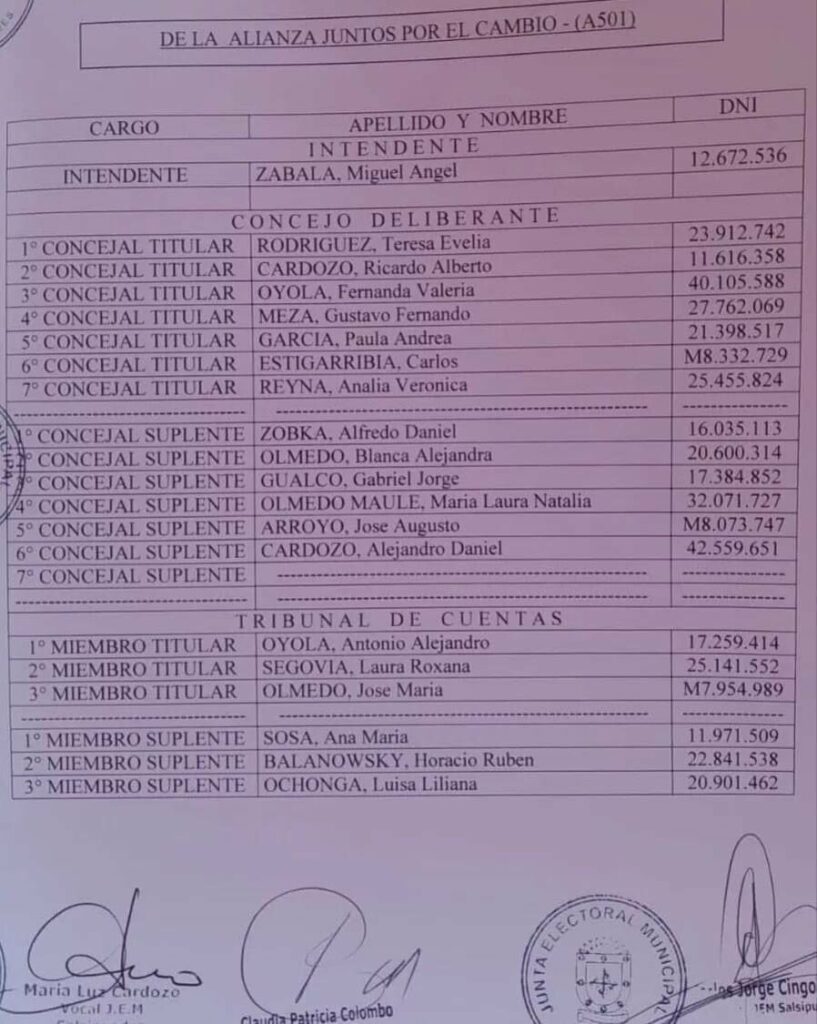 DE LA ALIANZA JUNTOS POR EL CAMBIO - (A501)
CARGO APELLIDO Y NOMBRE DNI
INTENDENTE
INTENDENTE ZABALA, Miguel Angel 12.672.536
CONCEJO DELIBERANTE
1° CONCEJAL TITULAR RODRIGUEZ, Teresa Evelia 23.912.742
2° CONCEJAL TITULAR CARDOZO, Ricardo Alberto 11.616.358
3° CONCEJAL TITULAR OYOLA, Fernanda Valeria 40.105.588
4° CONCEJAL TITULAR MEZA, Gustavo Fernando 27.762.069
5° CONCEJAL TITULAR GARCIA, Paula Andrea 21.398.517
6° CONCEJAL TITULAR ESTIGARRIBIA, Carlos M8.332.729
7° CONCEJAL TITULAR REYNA, Analia Veronica 25.455.824
1° CONCEJAL SUPLENTE ZOBKA, Alfredo Daniel 16.035.113
° CONCEJAL SUPLENTE OLMEDO, Blanca Alejandra 20.600.314
° CONCEJAL SUPLENTE GUALCO, Gabriel Jorge 17.384.852
4° CONCEJAL SUPLENTE OLMEDO MAULE, Maria Laura Natalia 32.071.727
5° CONCEJAL SUPLENTE ARROYO, Jose Augusto M8.073.747
6° CONCEJAL SUPLENTE CARDOZO, Alejandro Daniel 42.559.651
7° CONCEJAL SUPLENTE
TRIBUNAL DE CUENTAS
1° MIEMBRO TITULAR OYOLA, Antonio Alejandro 17.259.414
2° MIEMBRO TITULAR SEGOVIA, Laura Roxana 25.141.552
3° MIEMBRO TITULAR OLMEDO, Jose Maria M7.954.989
1° MIEMBRO SUPLENTE SOSA, Ana Maria 11.971.509
2° MIEMBRO SUPLENTE BALANOWSKY, Horacio Ruben 22.841.538
3° MIEMBRO SUPLENTE OCHONGA, Luisa Liliana 20.901.462
Maria Luz Cardozo
Vocal J.E.M
Claudia Patricia Colombo
JUNTA ELECTORAL MUNICIPAL
Jorge Cingo
JEM Salsipu